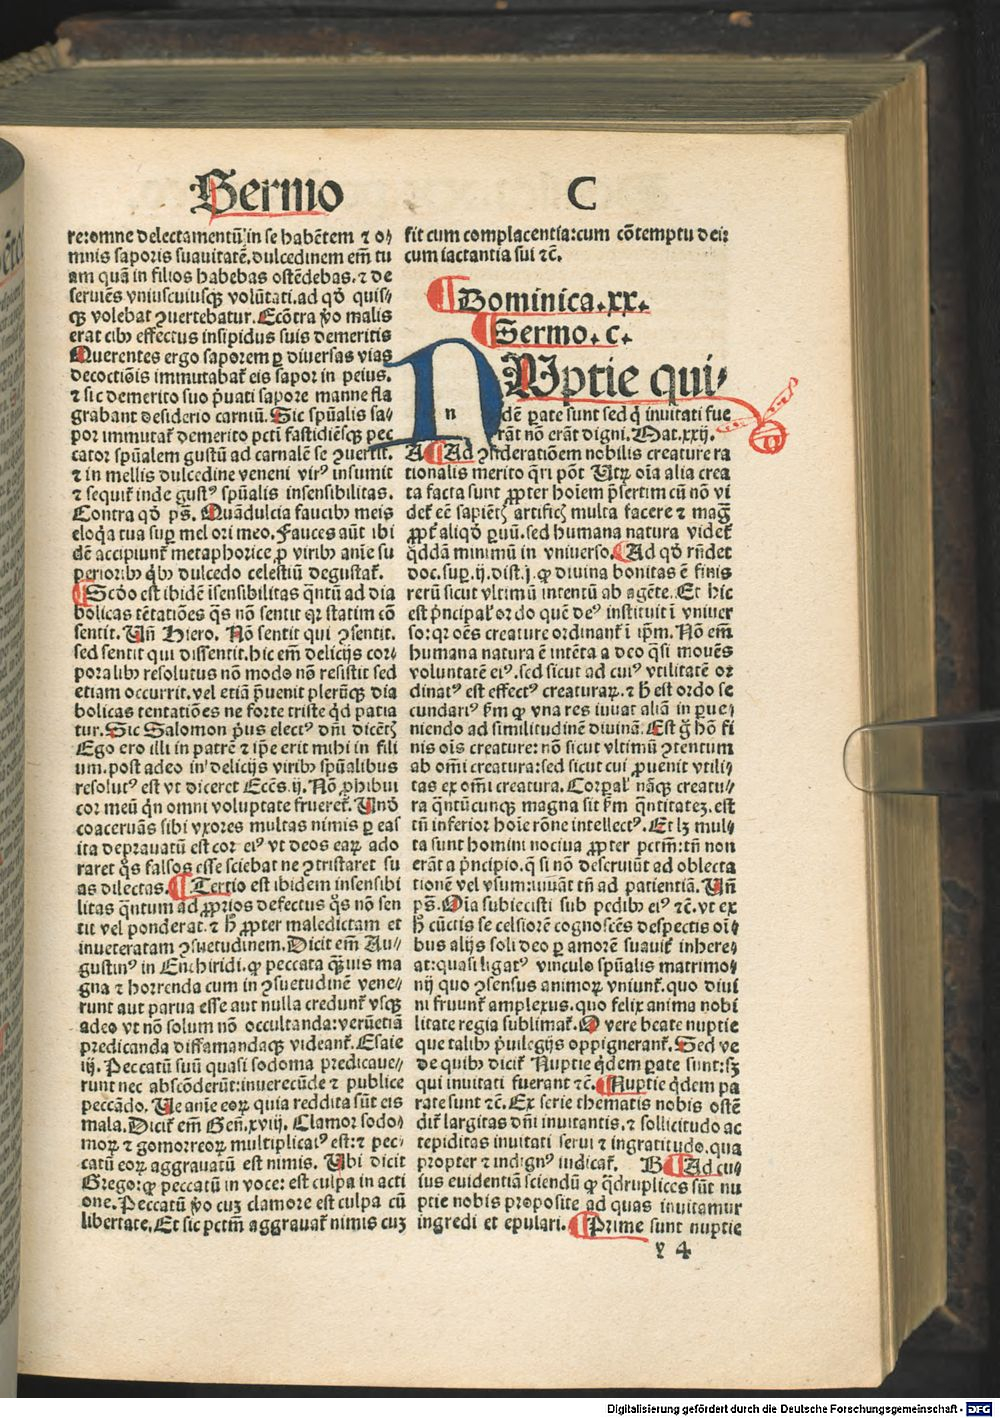 Sermo C
re:omne delectamentū in se habētem ⁊ o/
mnis saporis suauitatē.dulcedinem em̄ tu
am quā in filios habebas ostēdebas.⁊ de
seruiēs vniuscuiusqꝫ volūtati.ad qđ quis/
qꝫ volebat ꝯuertebatur. Ecōtra ṽo malis
erat cibꝰ effectus insipidus suis demeritis
Querentes ergo saporem ꝑ diuersas vias
decoctiōis immutabat᷑ eis sapor in peius.
⁊ sic demerito suo p̄uati sapore manne fla
grabant desiderio carniū. Sic spūalis sa/
por immutat᷑ demerito pcti fastidiēsqꝫ pec
cator spūalem gustū ad carnalē se ꝯuertit.
⁊ in mellis dulcedine veneni virꝰ insumit
⁊ sequit᷑ inde gustꝰ spūalis insensibilitas.
Contra qđ ps̄. Quā dulcia faucibꝰ meis
eloq̄a tua suꝑ mel ori meo. Fauces aūt ibi
dē accipiunt᷑ metaphorice ꝓ viribꝰ anīe su
perioribꝰ q̄bꝰ dulcedo celestiū degustat᷑.
Scđo est ibidē īsensibilitas q̄ntū ad dia
bolicas tētatiōes q̄s nō sentit qꝛ statim cō
sentit. Vn̄ Hiero. Nō sentit qui ꝯsentit.
sed sentit qui dissentit.hic em̄ delicijs cor/
poralibꝰ resolutus nō modo nō resistit sed
etiam occurrit.vel etiā p̄uenit plerūqꝫ dia
bolicas tentatiōes ne forte triste qđ patia
tur. Sic Salomon p̄us electꝰ dn̄i dicētꝭ
Ego ero illi in patrē ⁊ ip̄e erit mihi in fili
um.post adeo in delicijs viribꝰ spūalibus
resolutꝰ est vt diceret Eccēs.ij. Nō ꝓhibui
cor meū q̄n omni voluptate frueret᷑. Vnđ
coaceruās sibi vxores multas nimis ꝑ eas
ita deprauatū est cor eiꝰ vt deos eaꝝ ado
raret q̄s falsos esse sciebat ne ꝯtristaret su
as dilectas. Tertio est ibidem insensibi
litas q̄ntum ad ꝓprios defectus q̄s nō sen
tit vel ponderat.⁊ ħ ꝓpter maledictam et
inueteratam ꝯsuetudinem. Dicit em̄ Au/
gustinꝰ in Enchiridi.ꝙ peccata q̄ꝫuis ma
gna ⁊ horrenda cum in ꝯsuetudinē vene/
runt aut parua esse aut nulla credunt᷑ vsqꝫ
adeo vt nō solum nō occultanda:verūetiā
predicanda diffamandaqꝫ videant᷑. Esaie
iij. Peccatū suū quasi sodoma predicaue/
runt nec abscōderūt:inuerecūde ⁊ publice
peccādo. Ve anīe eoꝝ quia reddita sūt eis
mala. Dicit᷑ em̄ Gen̄.xviij. Clamor sodo/
moꝝ ⁊ gomorreoꝝ multiplicatꝰ est:⁊ pec/
catū eoꝝ aggrauatū est nimis. Vbi dicit
Gregor.ꝙ peccatū in voce: est culpa in acti
one. Peccatū ṽo cuꝫ clamore est culpa cū
libertate. Et sic pctm̄ aggrauat᷑ nimis cuꝫ
fit cum complacentia:cum cōtemptu dei:
cum iactantia sui ⁊c̄.
Dominica.xx.
Sermo.c.
n
NVptie qui/
dē ꝑate sunt sed q̄ inuitati fue
rāt nō erāt digni. Mat.xxij.
A Ad ꝯsideratiōem nobilis creature ra
tionalis merito q̄ri pōt Vtꝝ oīa alia crea
ta facta sunt ꝓpter hoīem p̄sertim cū nō vi
det᷑ eē sapiētꝭ artificꝭ multa facere ⁊ maḡ
ꝓpt᷑ aliqđ ꝑuū.sed humana natura videt᷑
q̄ddā minimū in vniuerso. Ad qđ rn̄det
doc.suꝑ.ij.dist.j.ꝙ diuina bonitas ē finis
rerū sicut vltimū intentū ab agēte. Et hic
est p̄ncipal᷑ ordo quē deꝰ instituit ī vniuer
so:qꝛ oēs creature ordinant᷑ ī ip̄m. Nō em̄
humana natura ē intēta a deo q̄si mouēs
voluntatē eiꝰ.sed sicut ad cuiꝰ vtilitatē or
dinatꝰ est effectꝰ creaturaꝝ.⁊ ħ est ordo se
cundariꝰ ẜm ꝙ vna res iuuat aliā in ꝑue/
niendo ad similitudinē diuinā. Est g̊ hō fi
nis oīs creature: nō sicut vltimū ꝯtentum
ab om̄i creatura:sed sicut cui ꝓuenit vtili/
tas ex om̄i creatura. Corꝑal᷑ nāqꝫ creatu/
ra q̄ntūcunqꝫ magna sit ẜm q̄ntitatēꝫ.est
tn̄ inferior hoīe rōne intellectꝰ. Et lꝫ mul/
ta sunt homini nociua ꝓpter pctm̄:tn̄ non
erāt a p̄ncipio.q̄ si nō deseruiūt ad oblecta
tionē vel vsum:iuuāt tn̄ ad patientiā. Vn̄
ps̄. Oīa subiecisti sub pedibꝰ eiꝰ ⁊c̄.vt ex
ħ cūctis se celsiorē cognoscēs despectis oī/
bus alijs soli deo ꝑ amorē suauit᷑ inhere/
at:quasi ligatꝰ vinculo spūalis matrimo/
nij quo ꝯsensus animoꝝ vniunt᷑.quo diui
ni fruunt᷑ amplexus.quo felix anima nobi
litate regia sublimat᷑. O vere beate nuptie
que talibꝰ p̄uilegijs oppignerant᷑. Sed ve
de quibꝰ dicit᷑ Nuptie q̄dem ꝑate sunt:sꝫ
qui inuitati fuerant ⁊c̄. Nuptie q̄dem pa
rate sunt ⁊c̄. Ex serie thematis nobis ostē
dit᷑ largitas dn̄i inuitantis.⁊ sollicitudo ac
tepiditas inuitati serui ⁊ ingratitudo.qua
propter ⁊ indignꝰ iudicat᷑. B Ad cu/
ius euidentiā sciendū ꝙ q̄druplices sūt nu
ptie nobis proposite ad quas inuitamur
ingredi et epulari. Prime sunt nuptie
y 4
Digitalisierung gefördert durch die Deutsche Forschungsgemeinschaft - DFG